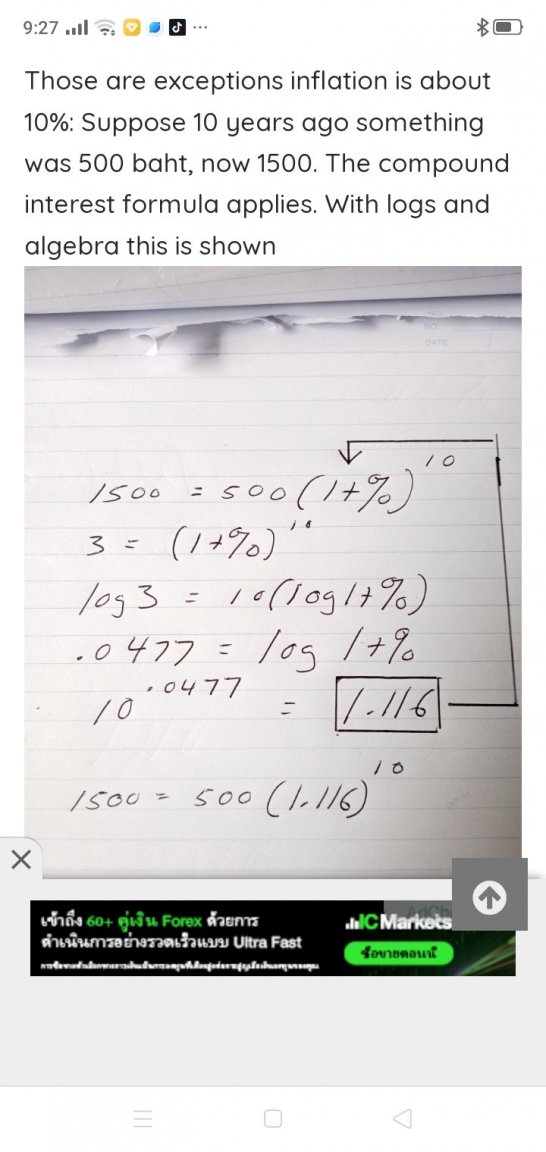 9:27
Those are exceptions inflation is about
10%: Suppose 10 years ago something
was 500 baht, now 1500. The compound
interest formula applies. With logs and
algebra this is shown
NO.
DATE
1500 = 500(1+%)^10
3 = (1+%)^10
log3 = 10(log1+%)
.0477 = log 1+%
10^.0477 = 1.116
1500 = 500(1.116)^10
เข้าถึง 60+ คู่เงิน Forex ด้วยการ
ดำเนินการอย่างรวดเร็วแบบ Ultra Fast
IC Markets
ซื้อขายตอนนี้